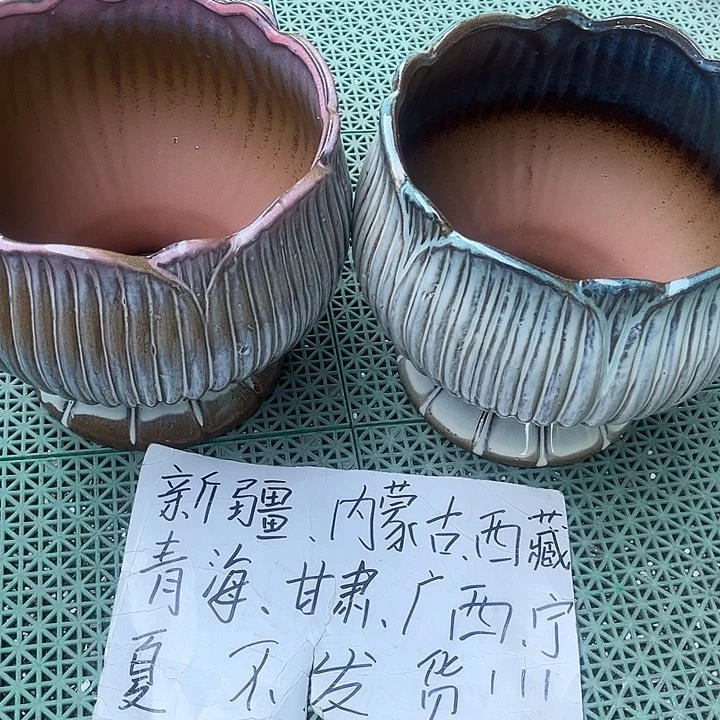 新疆、内蒙古、西藏
青海、甘肃、广西、宁
夏不发货!!!